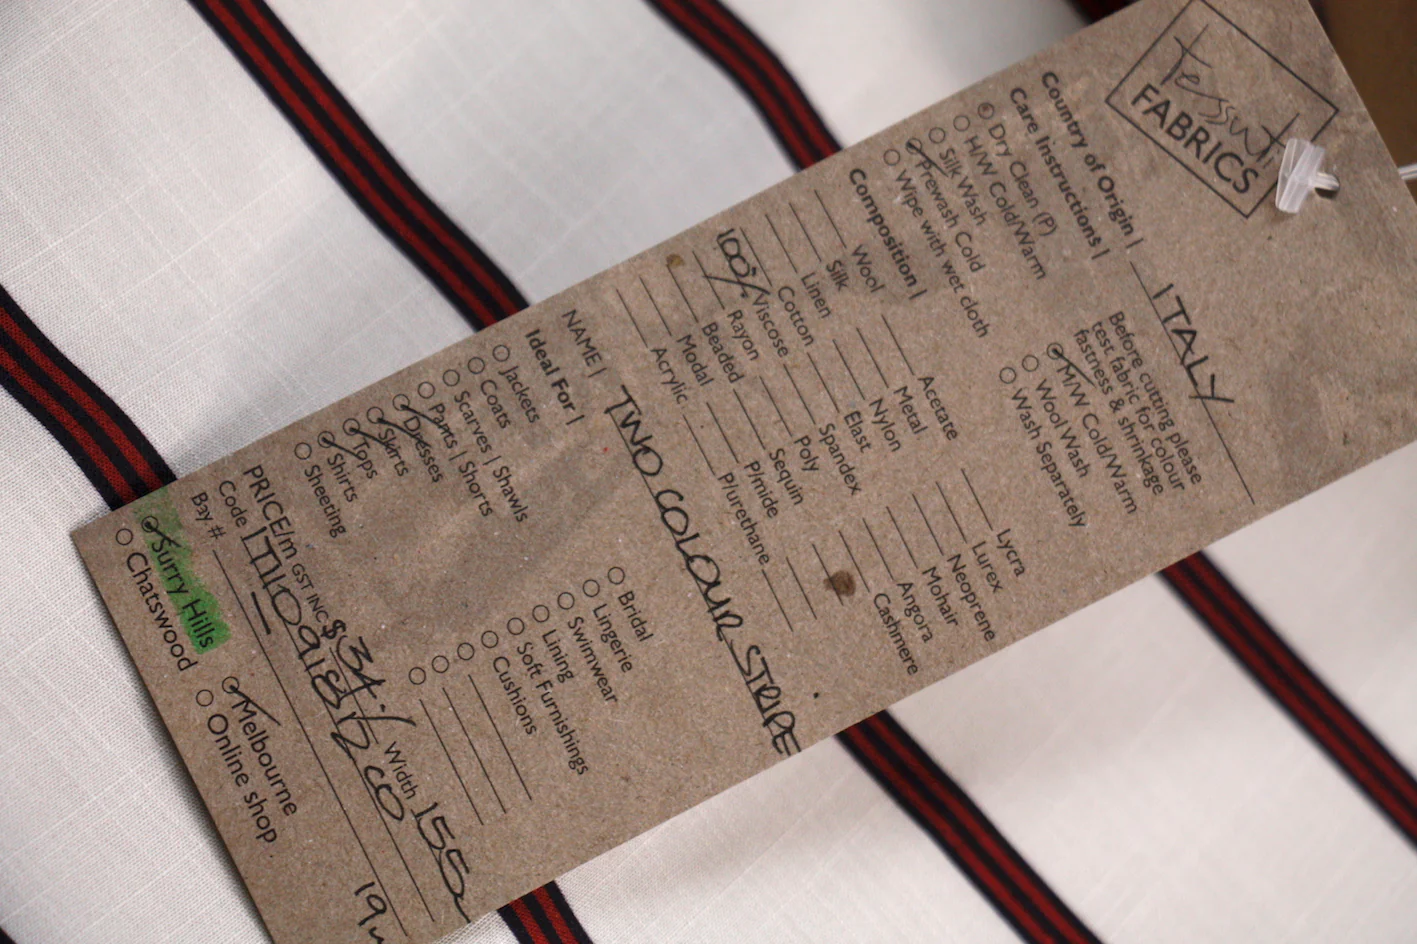 Tessuti
FABRICS
Country of Origin | ITALY
Care Instructions |
Dry Clean (P)
H/W Cold/Warm
Silk Wash
Prewash Cold
Wipe with wet cloth
Before cutting please
test fabric for colour
fastness & shrinkage
M/W Cold/Warm
Wool Wash
Wash Separately
Composition |
Wool
Silk
Linen
Cotton
100% Viscose
Rayon
Beaded
Modal
Acrylic
Acetate
Metal
Nylon
Elast
Spandex
Poly
Sequin
P/mide
P/urethane
Lycra
Lurex
Neoprene
Mohair
Angora
Cashmere
NAME | TWO COLOUR STRIPE
Ideal For |
Jackets
Coats
Scarves | Shawls
Pants | Shorts
Dresses
Skirts
Tops
Shirts
Sheeting
Bridal
Lingerie
Swimwear
Lining
Soft Furnishings
Cushions
PRICE/m GST INC $34 Width 155
Code
Bay #
Surry Hills
Chatswood
Melbourne
Online shop